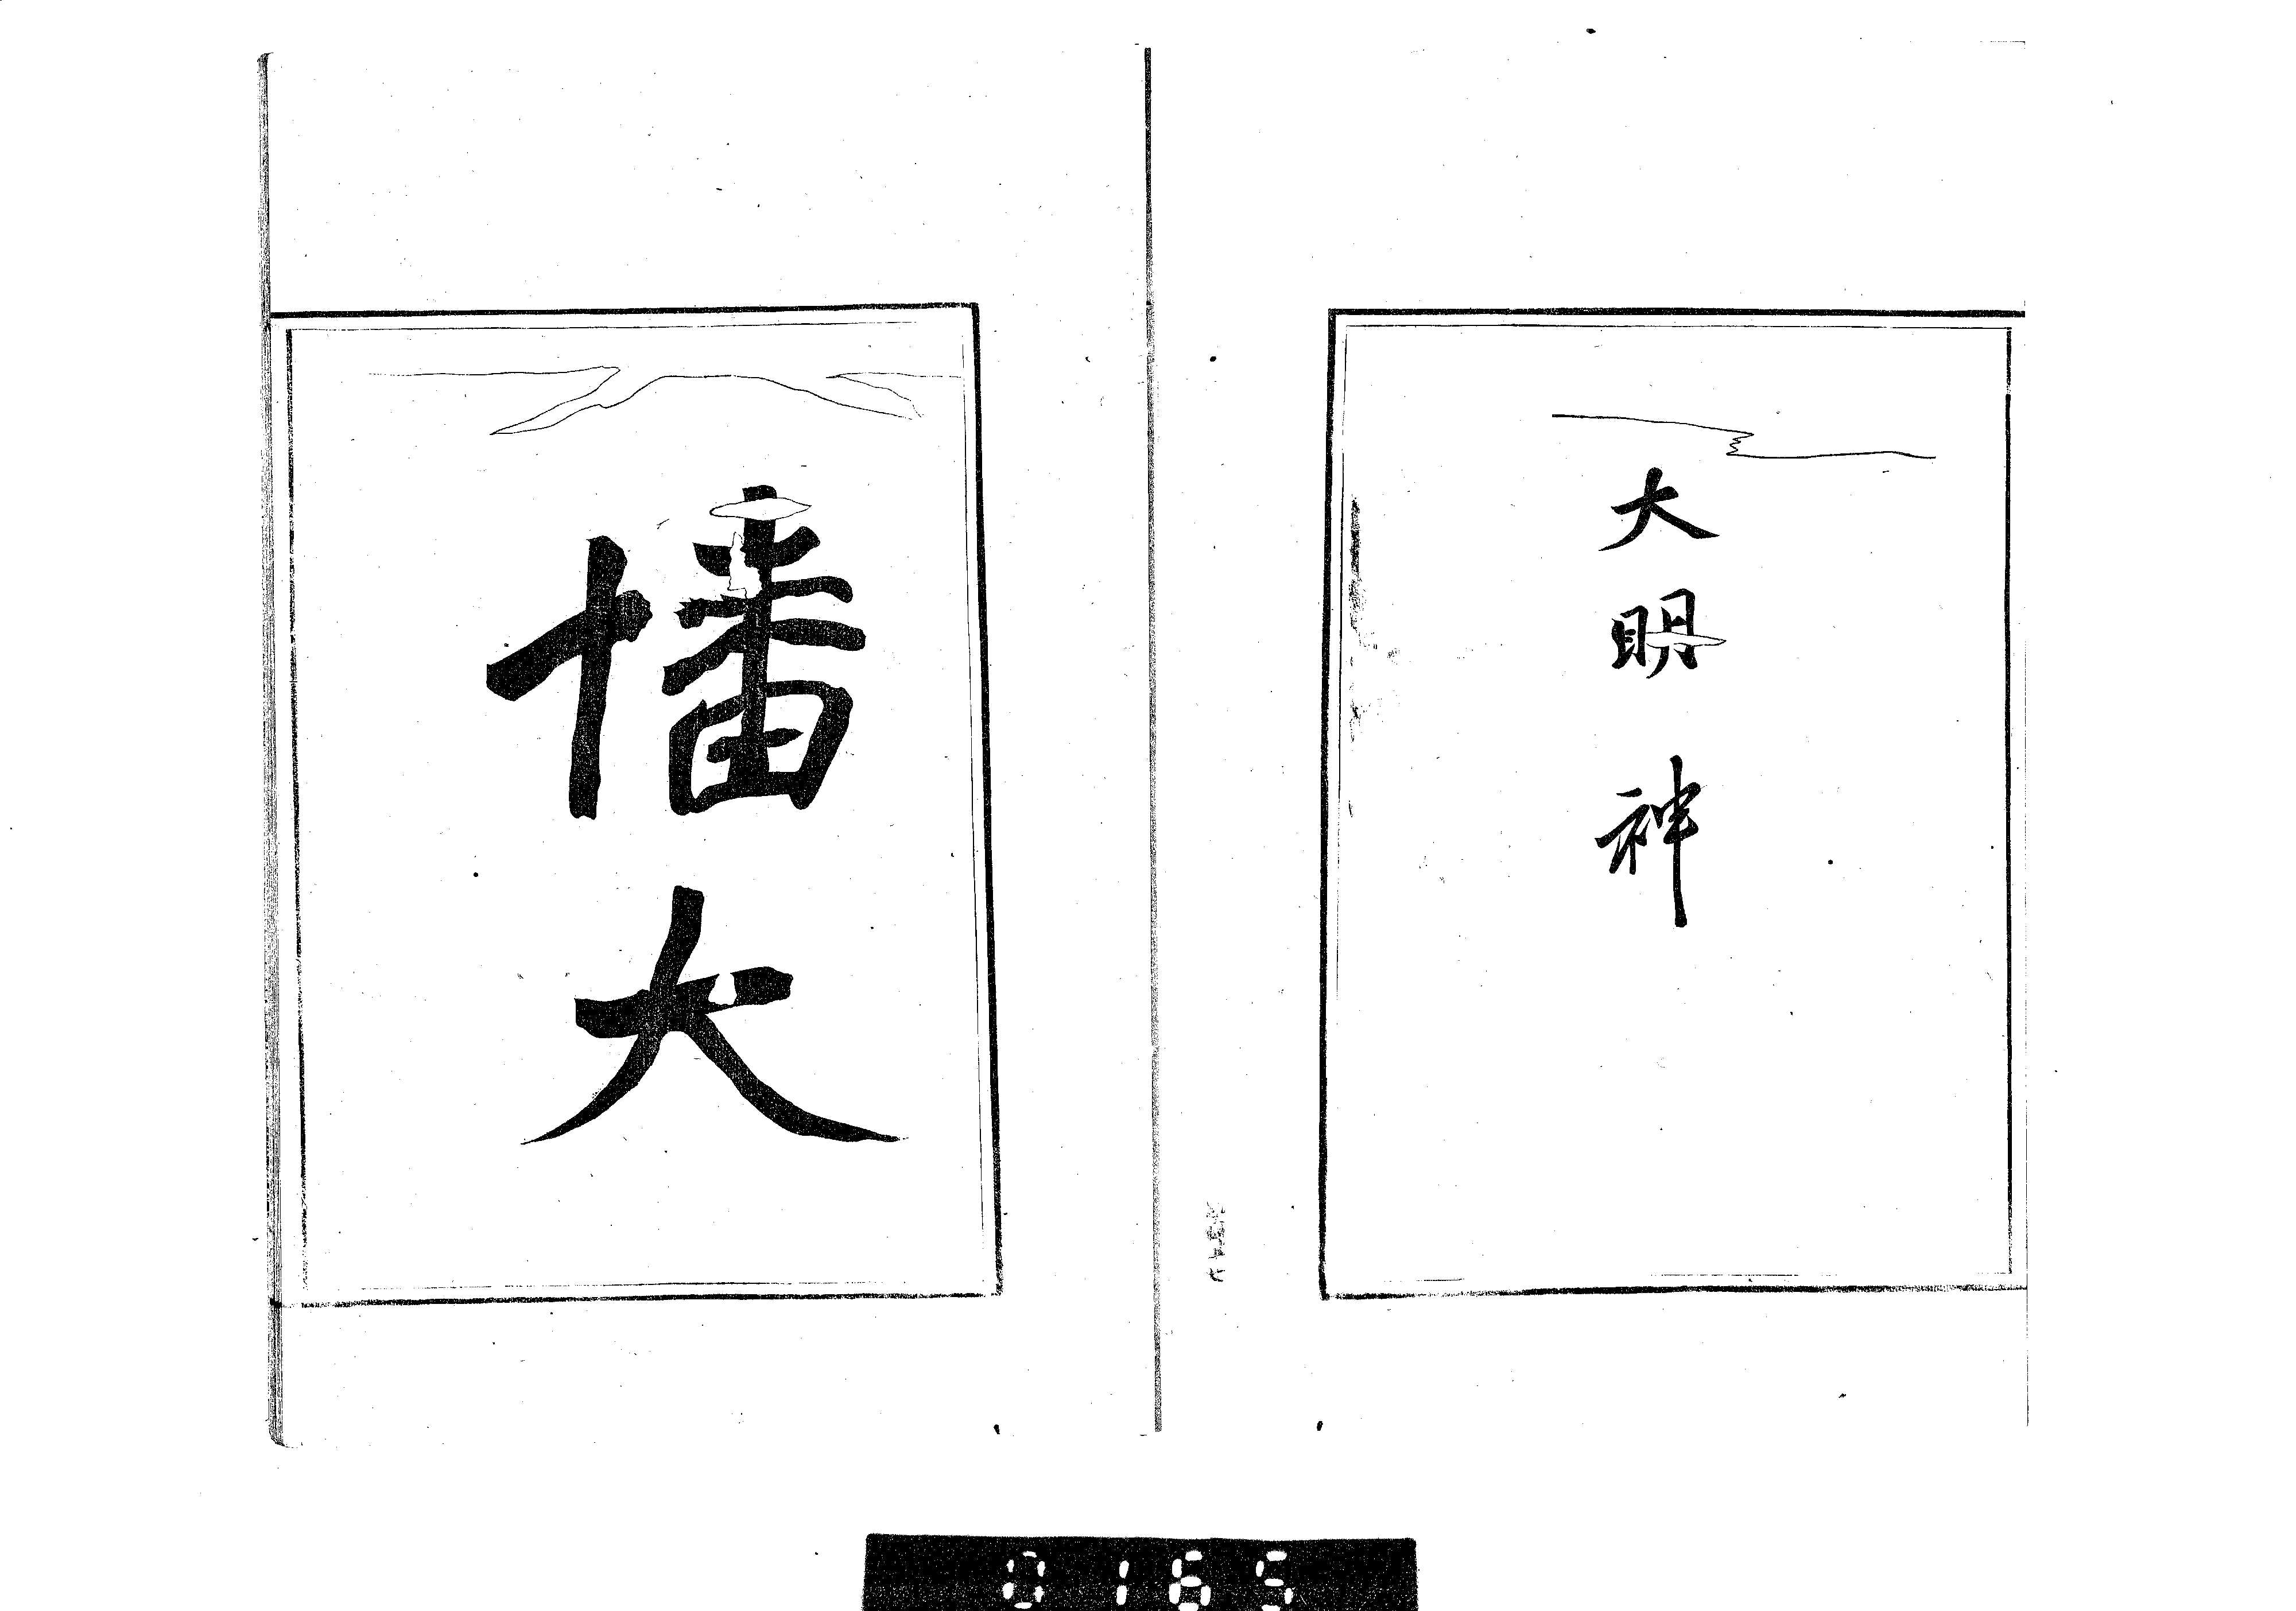 大明神
幡大
0165